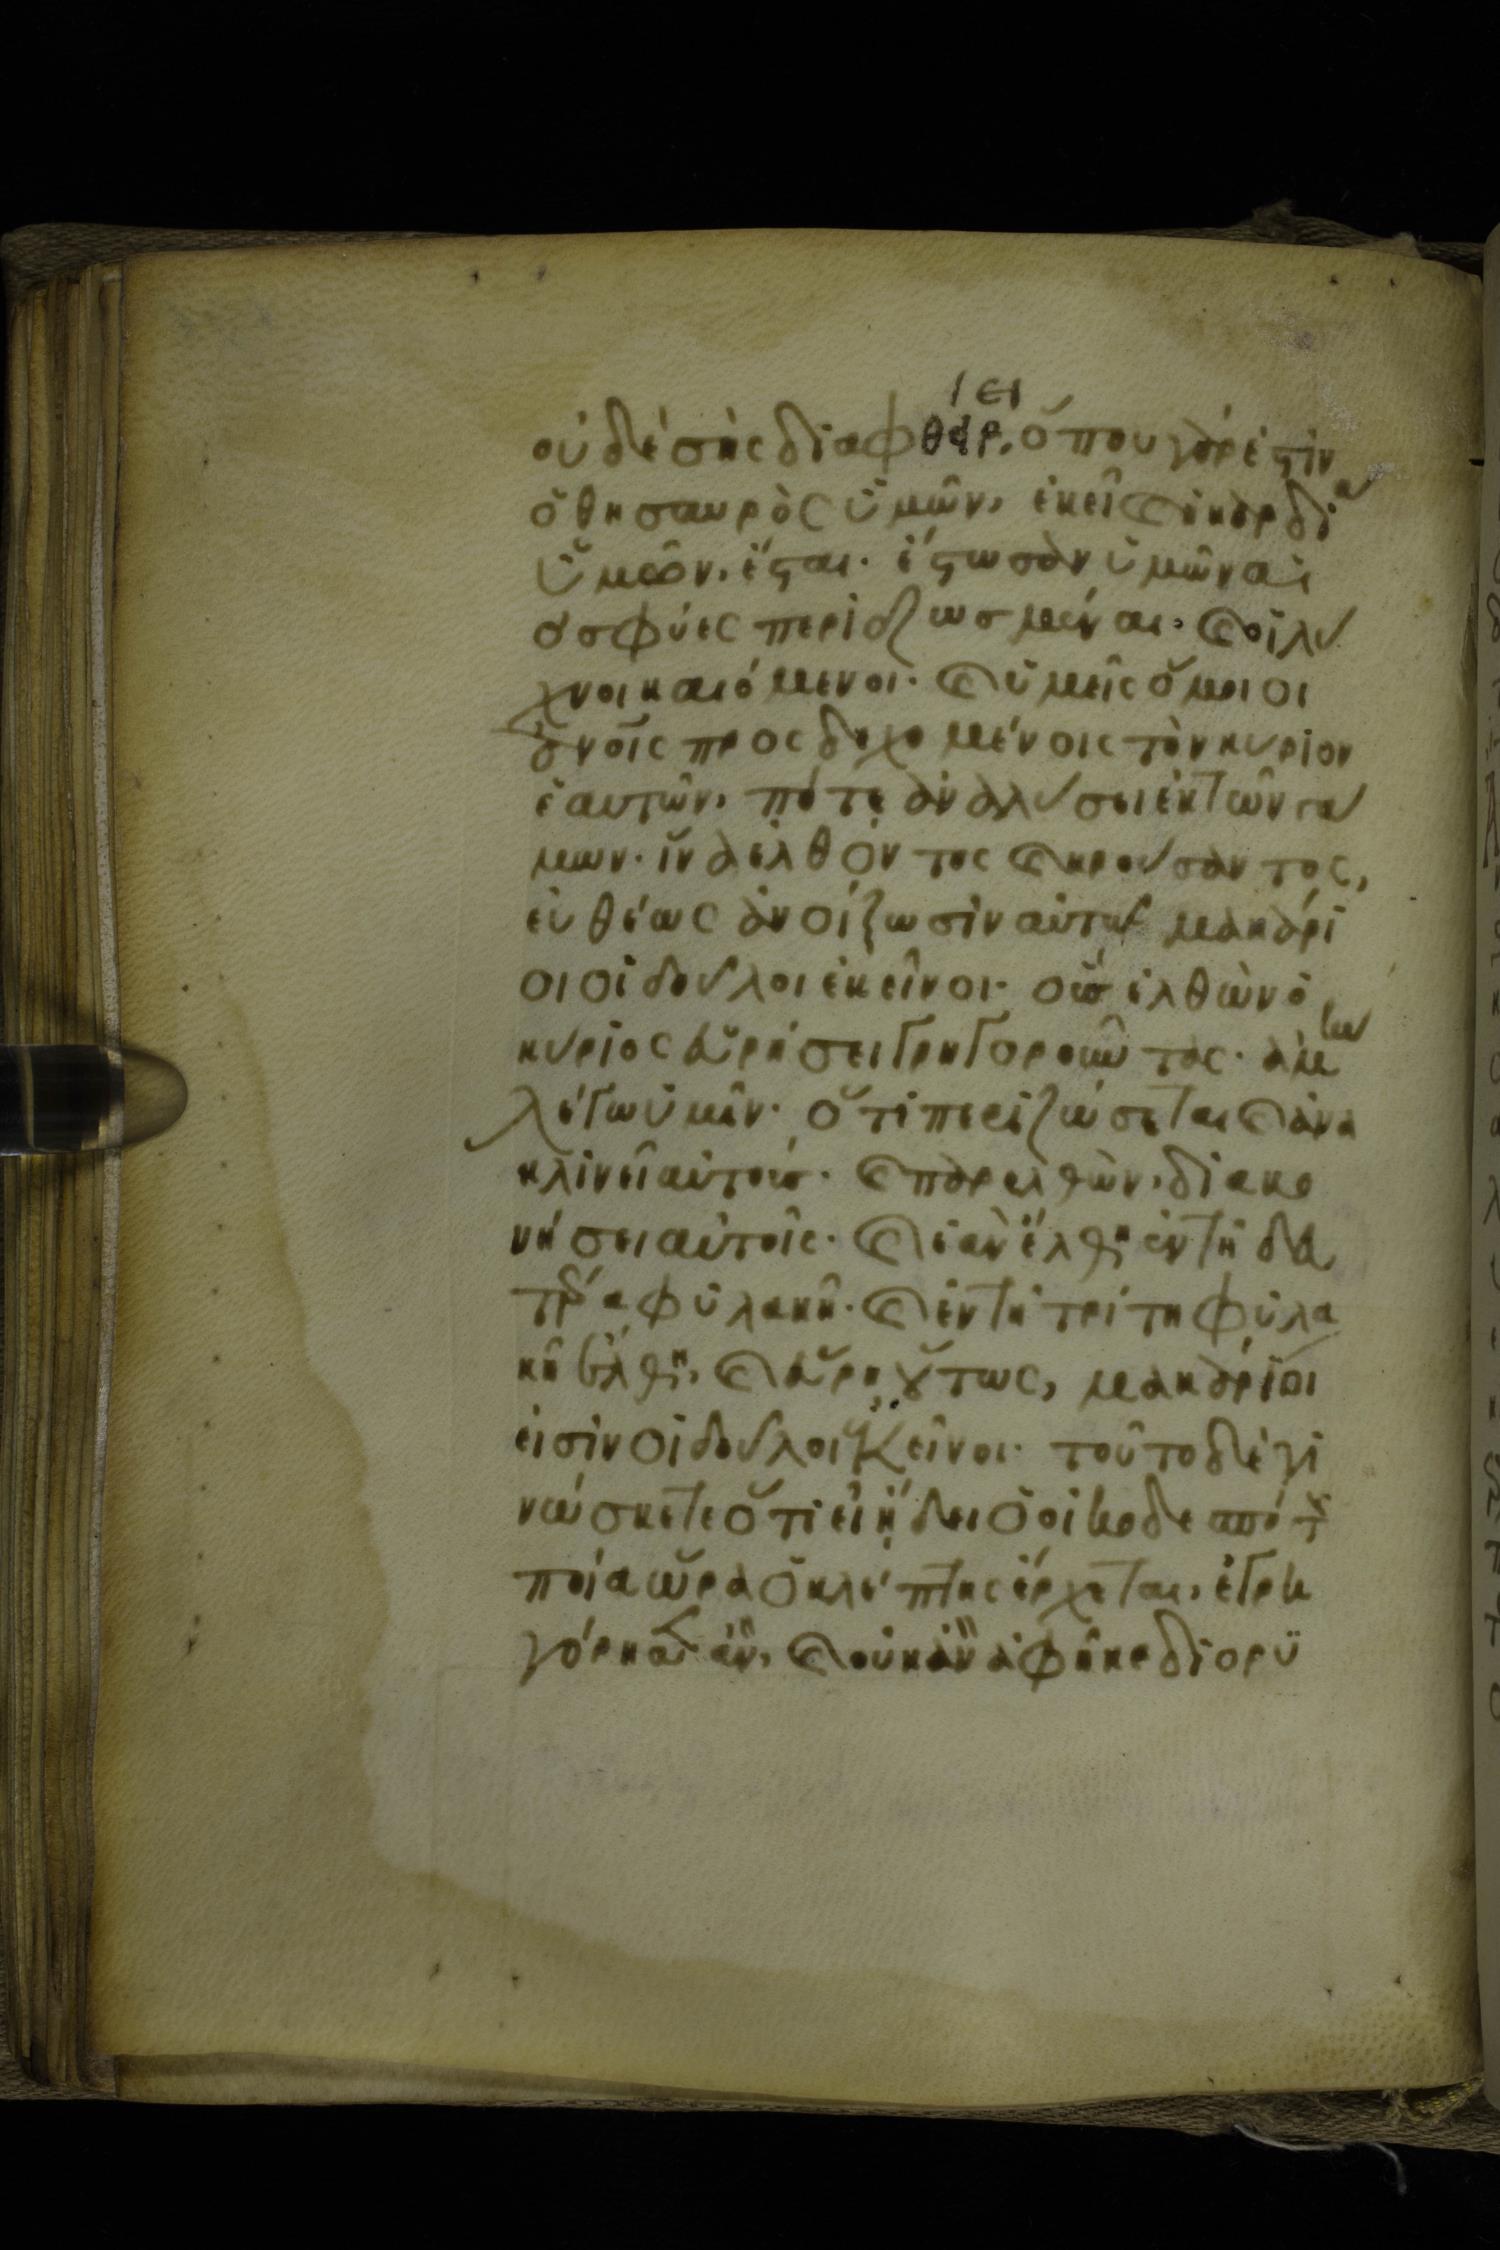 οὐδὲ σὴς διαφθείρει· ὅπου γάρ ἐστιν
ὁ θησαυρὸς ὑμῶν, ἐκεῖ καὶ ἡ καρδία
ὑμῶν, ἔσται· ἔστωσαν ὑμῶν αἱ
ὀσφύες περιεζωσμέναι, καὶ οἱ λύ
χνοι καιόμενοι· καὶ ὑμεῖς ὅμοιοι
ἀνοις προσδεχομένοις τὸν κύριον
ἑαυτῶν, πότε ἀναλύσει ἐκ τῶν γά
μων· ἵνα ἐλθόντος καὶ κρούσαντος,
εὐθέως ἀνοίξωσιν αὐτῷ μακάρι
οι οἱ δοῦλοι ἐκεῖνοι· οὓς ἐλθὼν ὁ
κύριος εὑρήσει γρηγοροῦντας· ἀμὴν
λέγω ὑμῖν· ὅτι περιζώσεται καὶ ἀνα
κλινεῖ αὐτούς· καὶ παρελθὼν, διακο
νήσει αὐτοῖς· καὶ ἐὰν ἔλθῃ ἐν τῇ δευ
τέρα φυλακῇ· καὶ ἐν τῇ τρίτη φυλα
κῇ ἔλθῃ, καὶ εὕρῃ οὕτως, μακάριοι
εἰσὶν οἱ δοῦλοι ἐκεῖνοι· τοῦτο δὲ γι
νώσκετε ὅτι εἰ ᾔδει ὁ οἰκοδεσπότης
ποία ὥρα ὁ κλέπτης ἔρχεται, ἐγρη
γόρησεν ἂν, καὶ οὐκ ἂν ἀφῆκε διορυ